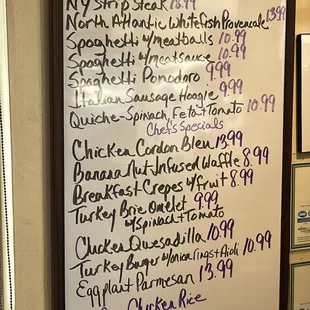 NY Strip Steak 18.99
North Atlantic Whitefish Provencale 13.99
Spaghetti w/meatballs 10.99
Spaghetti w/meatsauce 10.99
Spaghetti Pomodoro 9.99
Italian Sausage Hoagie 9.99
Quiche-Spinach, Feta+Tomato 10.99
Chef's Specials
Chicken Cordon Bleu 13.99
Banana Nut Infused Waffle 8.99
Breakfast Crepes w/fruit 8.99
Turkey Brie Omlet 9.99
w/spinach+tomato
Chicken Quesadilla 10.99
Turkey Burger w/onion rings+Aioli 10.99
Eggplant Parmesan 13.99
Chicken Rice